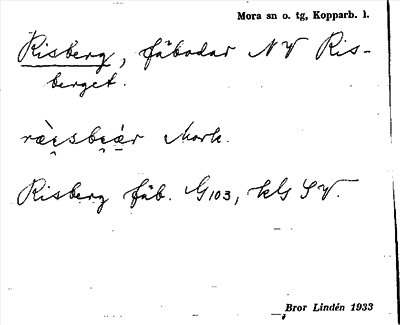 Mora sn o. tg, Kopparb. l.
Risberg, fäbodar NV Ris-
berget.
Mork.
Risberg fäb. G103, kls SV.
Bror Lindén 1933